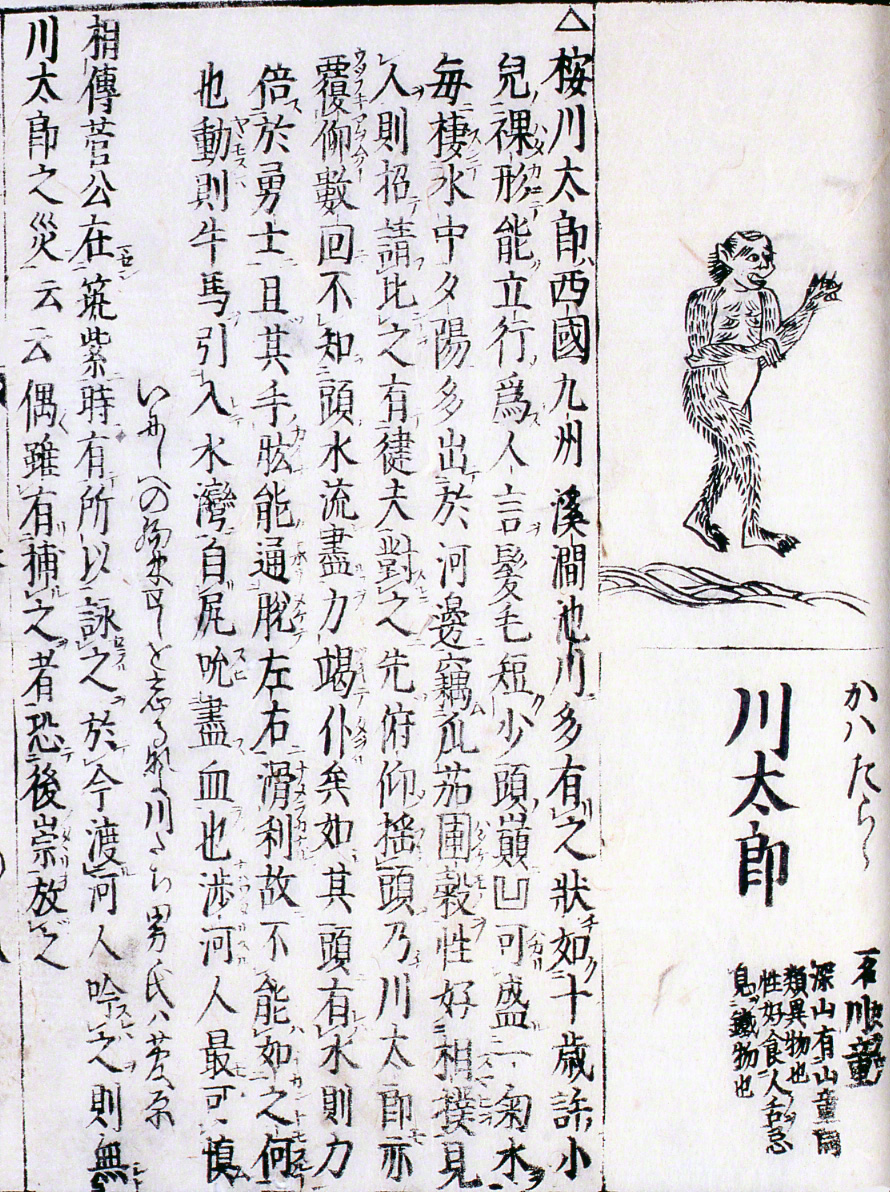 かハたらう
川太郎
一名川童
深山有山童同
類異物也
性好食人舌忌
見鐵物也
△桉川太郎西國九州溪澗池川多有之狀如十歳許小
兒裸形能立行爲人言髪毛短少頭巔凹可盛一匊水
毎棲水中夕陽多出於河邊竊瓜茄圃穀性好相撲見
人則招請比之有健夫對之先俯仰揺頭乃川太郎亦
覆仰數回不知頭水流盡力竭仆矣如其頭有水則力
倍於勇士且其手肱能通脱左右滑利故不能如之何
也動則牛馬引入水灣自尻吮盡血也渉河人最可愼
いにしへの約束せしを忘るなよ川たち男氏ハ菅原
相傳菅公在筑紫時有所以詠之於今渡河人吟之則無
川太郎之災云云偶雖有捕之者恐後崇放之